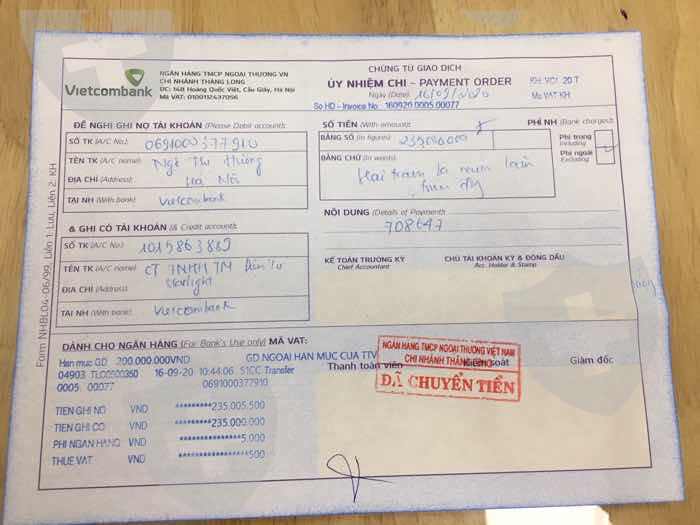 Vietcombank
NGÂN HÀNG TMCP NGOẠI THƯƠNG VN
CHI NHÁNH THĂNG LONG
ĐC: 14B Hoàng Quốc Việt, Cầu Giấy, Hà Nội
Mã VAT: 0100112437056
CHỨNG TỪ GIAO DỊCH
ỦY NHIỆM CHI - PAYMENT ORDER
Ngày (Date) 16/09/2020
So HD - Invoice No: 160920.0005.00077
20T
Ma VAT KH
ĐỀ NGHỊ GHI NỢ TÀI KHOẢN (Please Debit account):
SỐ TK (A/C No.) 0691000377910
TÊN TK (A/C name) Ngô Thị Hường
ĐỊA CHỈ (Address) Hà Nội
TẠI NH (With bank) Vietcombank
& GHI CÓ TÀI KHOẢN (& Credit account):
SỐ TK (A/C No.) 1015863889
TÊN TK (A/C name) CT TNHH TM Điện Tử
Starlight
ĐỊA CHỈ (Address)
TẠI NH (With bank) Vietcombank
SỐ TIỀN (With amount)
BẰNG SỐ (In figures) 235000000
BẰNG CHỮ (In words) Hai trăm ba mươi lăm
triệu
PHÍ NH (Bank charges)
Phí trong
Including
Phí ngoài
Excluding
NỘI DUNG (Details of Payment)
708647
KẾ TOÁN TRƯỞNG KÝ
Chief Accountant
CHỦ TÀI KHOẢN KÝ & ĐÓNG DẤU
Acc. Holder & Stamp
Form NHBL04-06/99, Liên 1: Lưu, Liên 2: KH
DÀNH CHO NGÂN HÀNG (For Bank's Use only) MÃ VAT:
Han muc GD 200.000.000VND
GD NGOAI HAN MUC CUA TTV
04903 16-09-20 10:44:06 51CC Transfer
0005. 00077 0691000377910
TIEN GHI NO VND *********235.005.500
TIEN GHI CO VND *********235.000.000
PHI NGAN HANG VND 5.000
THUE VAT VND 500
Thanh toán viên
Giám đốc
NGÂN HÀNG TMCP NGOẠI THƯƠNG VIỆT NAM
CHI NHÁNH THĂNG LONG
ĐÃ CHUYỂN TIỀN